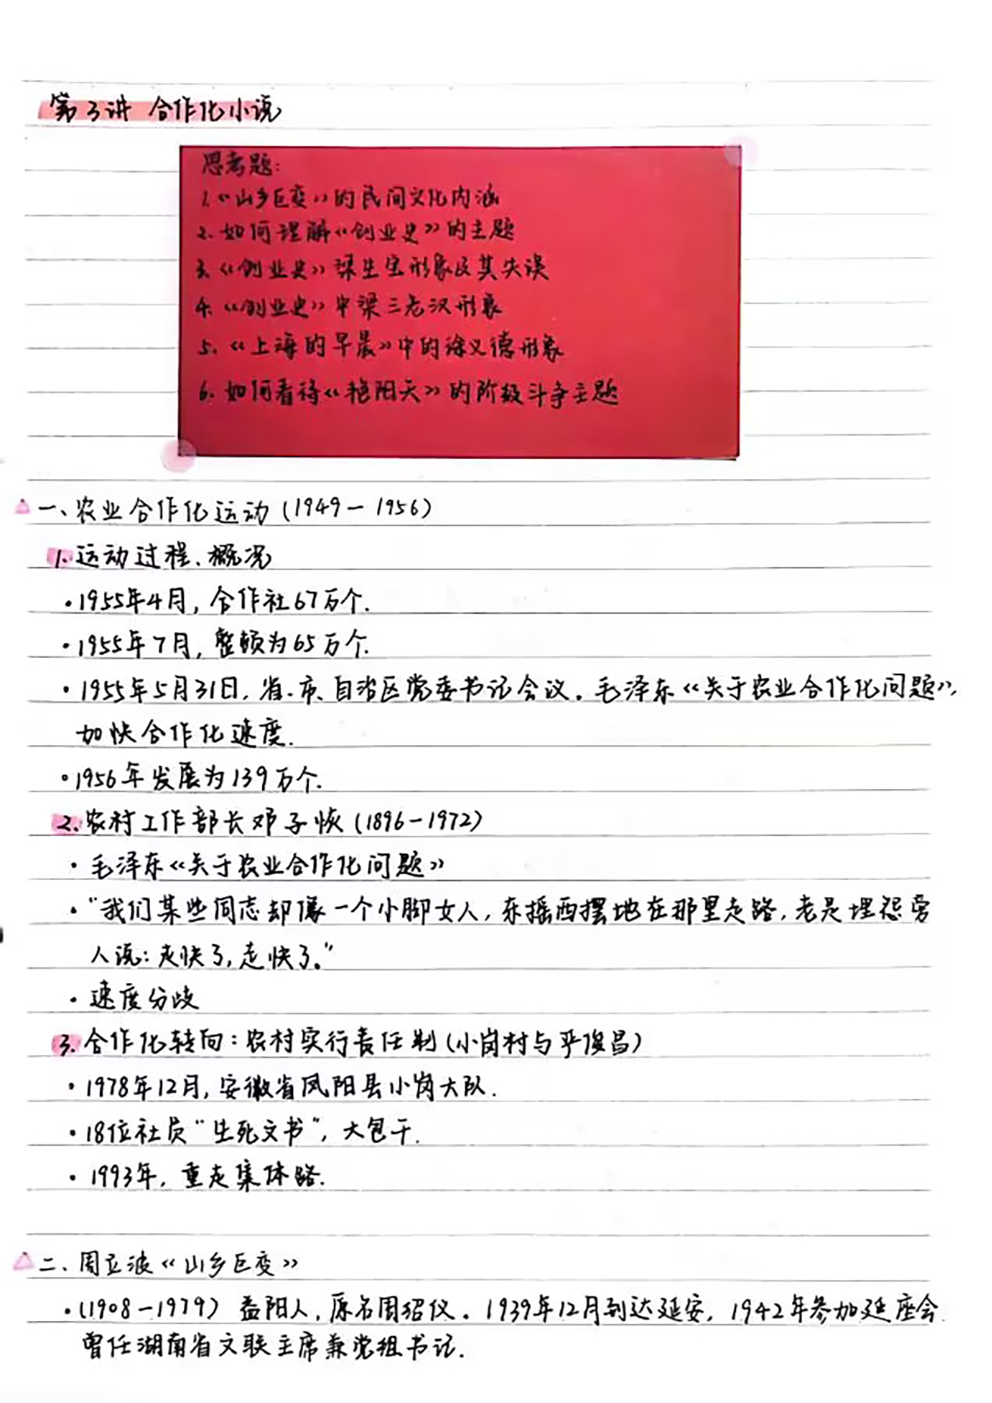 第3讲 合作化小说
思考题：
1.《山乡巨变》的民间文化内涵
2.如何理解《创业史》的主题
3.《创业史》梁生宝形象及其失误
4.《创业史》中梁三老汉形象
5.《上海的早晨》中的徐义德形象
6.如何看待《艳阳天》的阶级斗争主题
一、农业合作化运动（1949－1956）
1.运动过程、概况
·1955年4月，合作社67万个.
·1955年7月，整顿为65万个.
·1955年5月31日，省、市、自治区党委书记会议。毛泽东《关于农业合作化问题》，
加快合作化速度.
·1956年发展为139万个.
2.农村工作部长邓子恢（1896－1972）
·毛泽东《关于农业合作化问题》
·“我们某些同志却像一个小脚女人，东摇西摆地在那里走路，老是埋怨旁
人说：走快了，走快了。”
·速度分歧
3.合作化转向：农村实行责任制（小岗村与严俊昌）
·1978年12月，安徽省凤阳县小岗大队.
·18位社员“生死文书”，大包干.
·1993年，重走集体路.
二、周立波《山乡巨变》
·（1908－1979） 益阳人，原名周绍仪。1939年12月到达延安，1942年参加延座会.
曾任湖南省文联主席兼党组书记.